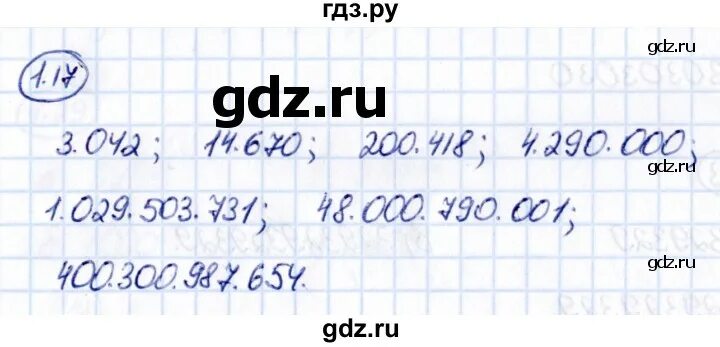 гдз.ру
gdz.ru
1.17
gdz.ru
3.042; 14.670; 200.418; 4.290.000;
gdz.ru
1.029.503.731; 48.000.790.001;
gdz.ru
400.300.987.654.
gdz.ru
gdz.ru